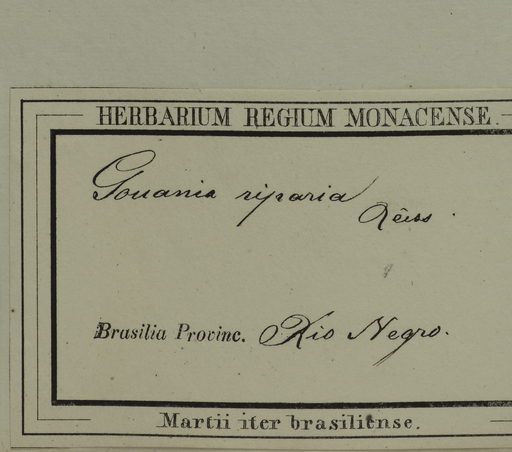 HERBARIUM REGIUM MONACENSE.
Gouania riparia
Reiss.
Brasilia Provinc. Rio Negro.
Martii iter brasiliense.